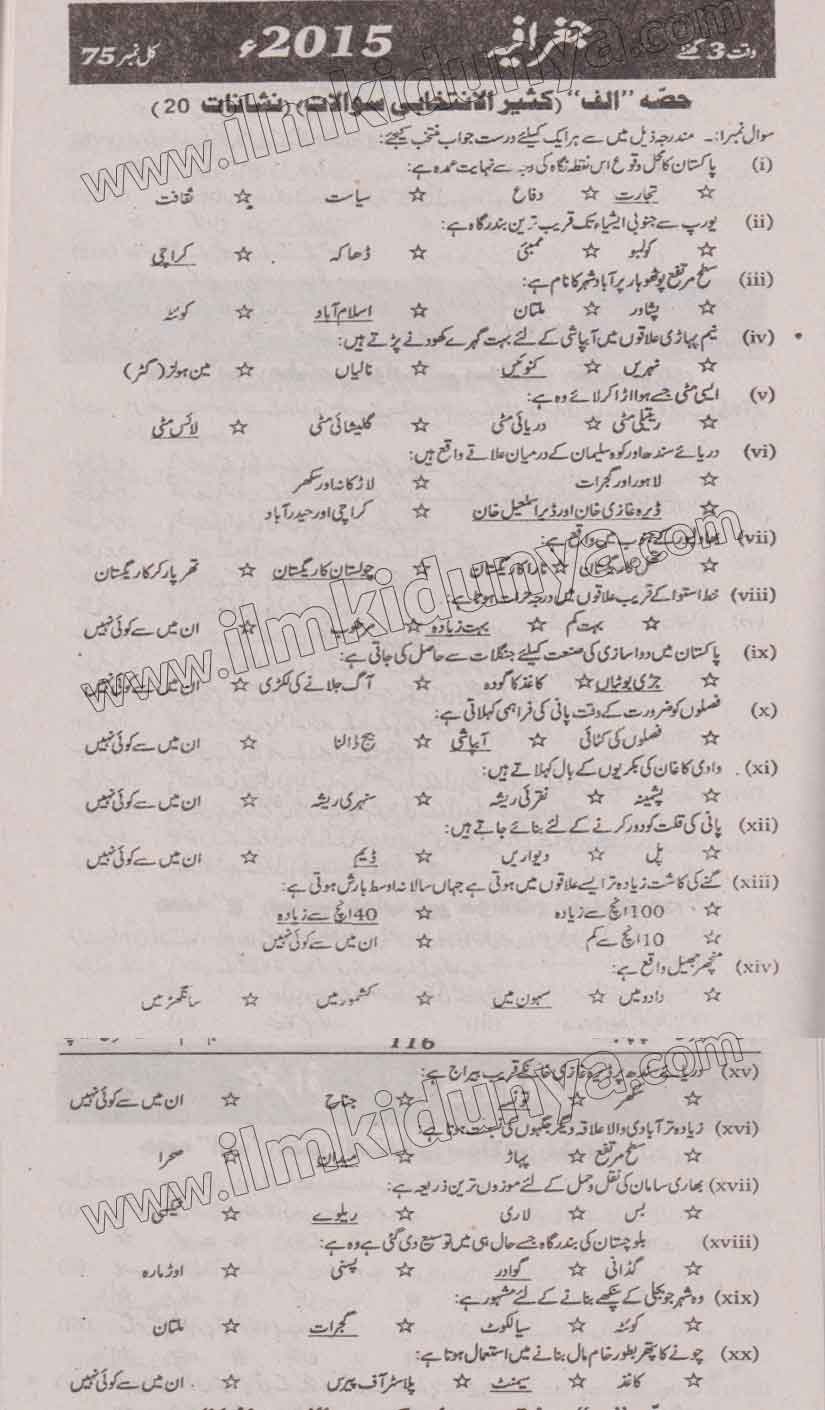 وقت 3 گھنٹے جغرافیہ 2015ء کل نمبر 75
حصّہ "الف" (کثیر الانتخابی سوالات) (نشانات 20)
سوال نمبر1:۔ مندرجہ ذیل میں سے ہر ایک کیلئے درست جواب منتخب کیجئے:
(i) پاکستان کا محل وقوع اس نقطہ نگاہ کی وجہ سے نہایت عمدہ ہے:
☆ تجارت ☆ دفاع ☆ سیاست ☆ ثقافت
(ii) یورپ سے جنوبی ایشیاء تک قریب ترین بندرگاہ ہے:
☆ کولمبو ☆ ممبئی ☆ ڈھاکہ ☆ کراچی
(iii) سطح مرتفع پوٹھوہار پر آباد شہر کا نام ہے:
☆ پشاور ☆ ملتان ☆ اسلام آباد ☆ کوئٹہ
(iv) نیم پہاڑی علاقوں میں آبپاشی کے لئے بہت گہرے کھودنے پڑتے ہیں:
☆ نہریں ☆ کنوئیں ☆ نالیاں ☆ مین ہولز (گٹر)
(v) ایسی مٹی جسے ہوا اڑا کر لائے وہ ہے:
☆ ریتیلی مٹی ☆ دریائی مٹی ☆ گلیشائی مٹی ☆ لائس مٹی
(vi) دریائے سندھ اور کوہ سلیمان کے درمیان علاقے واقع ہیں:
☆ لاہور اور گجرات ☆ لاڑکانہ اور سکھر
☆ ڈیرہ غازی خان اور ڈیرا اسمٰعیل خان ☆ کراچی اور حیدرآباد
(vii) بہاولپور کے جنوب میں واقع ہے:
☆ تھل کا ریگستان ☆ نارا کا ریگستان ☆ چولستان کا ریگستان ☆ تھرپارکر کا ریگستان
(viii) خط استوا کے قریب علاقوں میں درجہ حرارت ہوتا ہے:
☆ بہت کم ☆ بہت زیادہ ☆ مرطوب ☆ ان میں سے کوئی نہیں
(ix) پاکستان میں دوا سازی کی صنعت کیلئے جنگلات سے حاصل کی جاتی ہے:
☆ جڑی بوٹیاں ☆ کاغذ کا گودہ ☆ آگ جلانے کی لکڑی ☆ ان میں سے کوئی نہیں
(x) فصلوں کو ضرورت کے وقت پانی کی فراہمی کہلاتی ہے:
☆ فصلوں کی کٹائی ☆ آبپاشی ☆ بیج ڈالنا ☆ ان میں سے کوئی نہیں
(xi) وادی کاغان کی بکریوں کے بال کہلاتے ہیں:
☆ پشمینہ ☆ نقرئی ریشہ ☆ سنہری ریشہ ☆ ان میں سے کوئی نہیں
(xii) پانی کی قلت کو دور کرنے کے لئے بنائے جاتے ہیں:
☆ پل ☆ دیواریں ☆ ڈیم ☆ ان میں سے کوئی نہیں
(xiii) گنے کی کاشت زیادہ تر ایسے علاقوں میں ہوتی ہے جہاں سالانہ اوسط بارش ہوتی ہے:
☆ 100 انچ سے زیادہ ☆ 40 انچ سے زیادہ
☆ 10 انچ سے کم ☆ ان میں سے کوئی نہیں
(xiv) منچھر جھیل واقع ہے:
☆ دادو میں ☆ سہون میں ☆ کشمور میں ☆ سانگھڑ میں
116
(xv) دریائے سندھ پر ڈیرہ غازی خان کے قریب بیراج ہے:
☆ سکھر ☆ تونسہ ☆ جناح ☆ ان میں سے کوئی نہیں
(xvi) زیادہ تر آبادی والا علاقہ دیگر جگہوں کی نسبت ہوتا ہے:
☆ سطح مرتفع ☆ پہاڑ ☆ میدان ☆ صحرا
(xvii) بھاری سامان کی نقل و حمل کے لئے موزوں ترین ذریعہ ہے:
☆ بس ☆ لاری ☆ ریلوے ☆ ٹیکسی
(xviii) بلوچستان کی بندرگاہ جسے حال ہی میں توسیع دی گئی ہے وہ ہے:
☆ گڈانی ☆ گوادر ☆ پسنی ☆ اوڑمارہ
(xix) وہ شہر جو بجلی کے پنکھے بنانے کے لئے مشہور ہے:
☆ کوئٹہ ☆ سیالکوٹ ☆ گجرات ☆ ملتان
(xx) چونے کا پتھر بطور خام مال بنانے میں استعمال ہوتا ہے:
☆ کاغذ ☆ سیمنٹ ☆ پلاسٹر آف پیرس ☆ ان میں سے کوئی نہیں
www.ilmkidunya.com
www.ilmkidunya.com
www.ilmkidunya.com